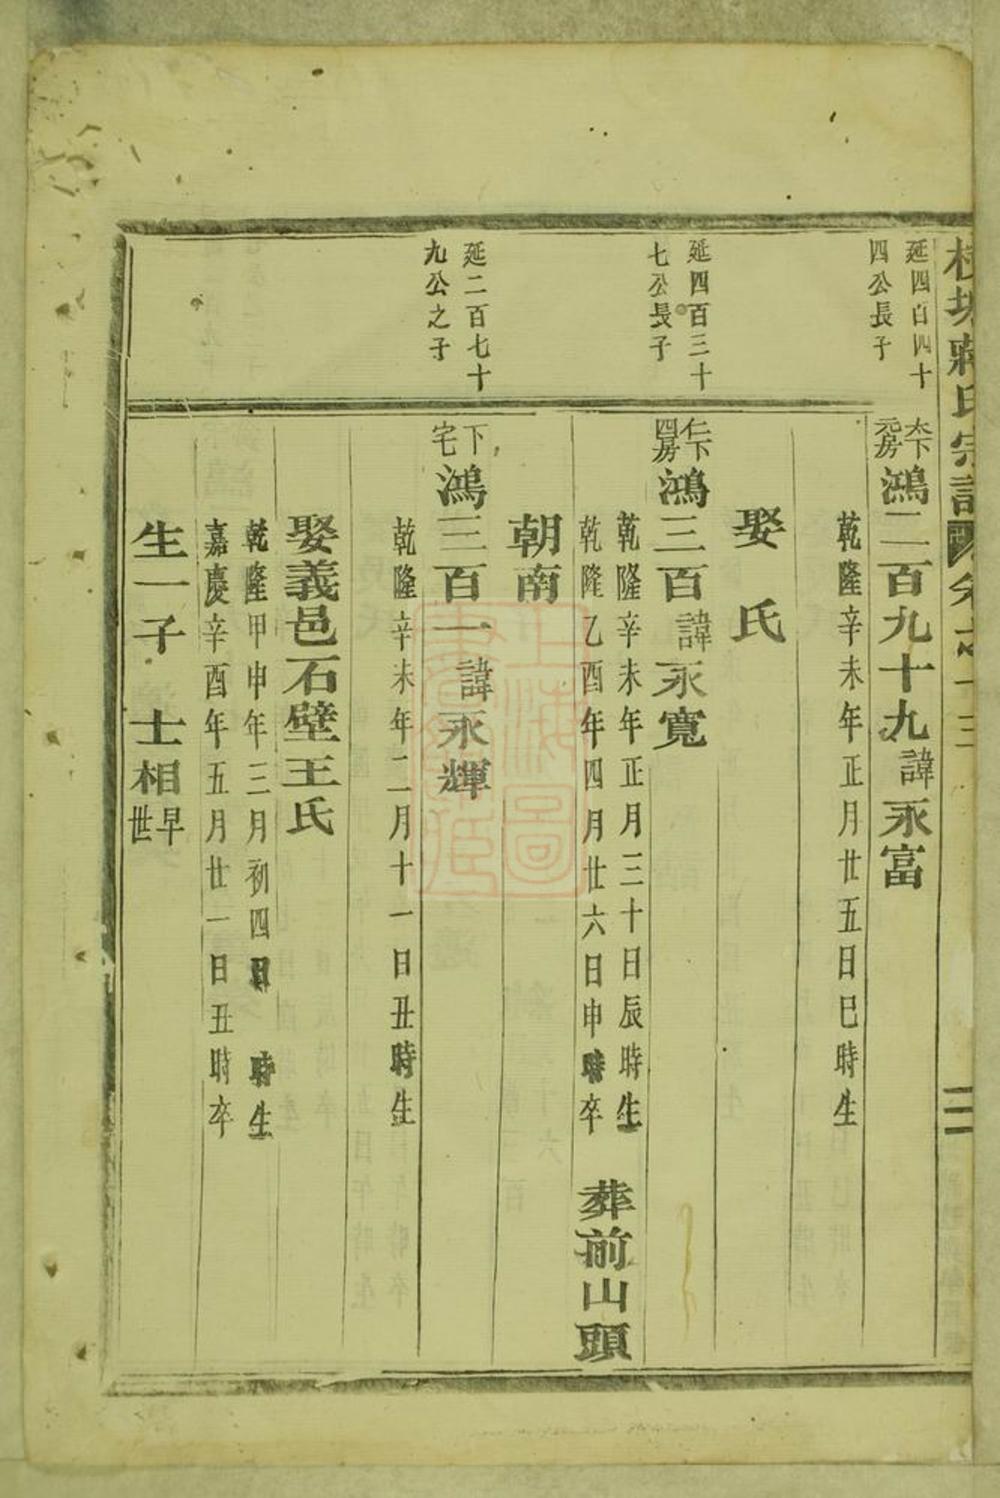 蔣氏宗譜
延四百四十
四公長子
太下
元房
鴻二百九十九諱永富
乾隆辛未年正月廿五日巳時生
娶 氏
延四百三十
七公長子
仁下
四房
鴻三百諱永寬
乾隆辛未年正月三十日辰時生
乾隆乙酉年四月廿六日申時卒 葬前山頭
朝南
延二百七十
九公之子
下
宅
鴻三百一諱永輝
乾隆辛未年二月十一日丑時生
娶義邑石壁王氏
乾隆甲申年三月初四日 時生
嘉慶辛酉年五月廿一日丑時卒
生一子 士相早世